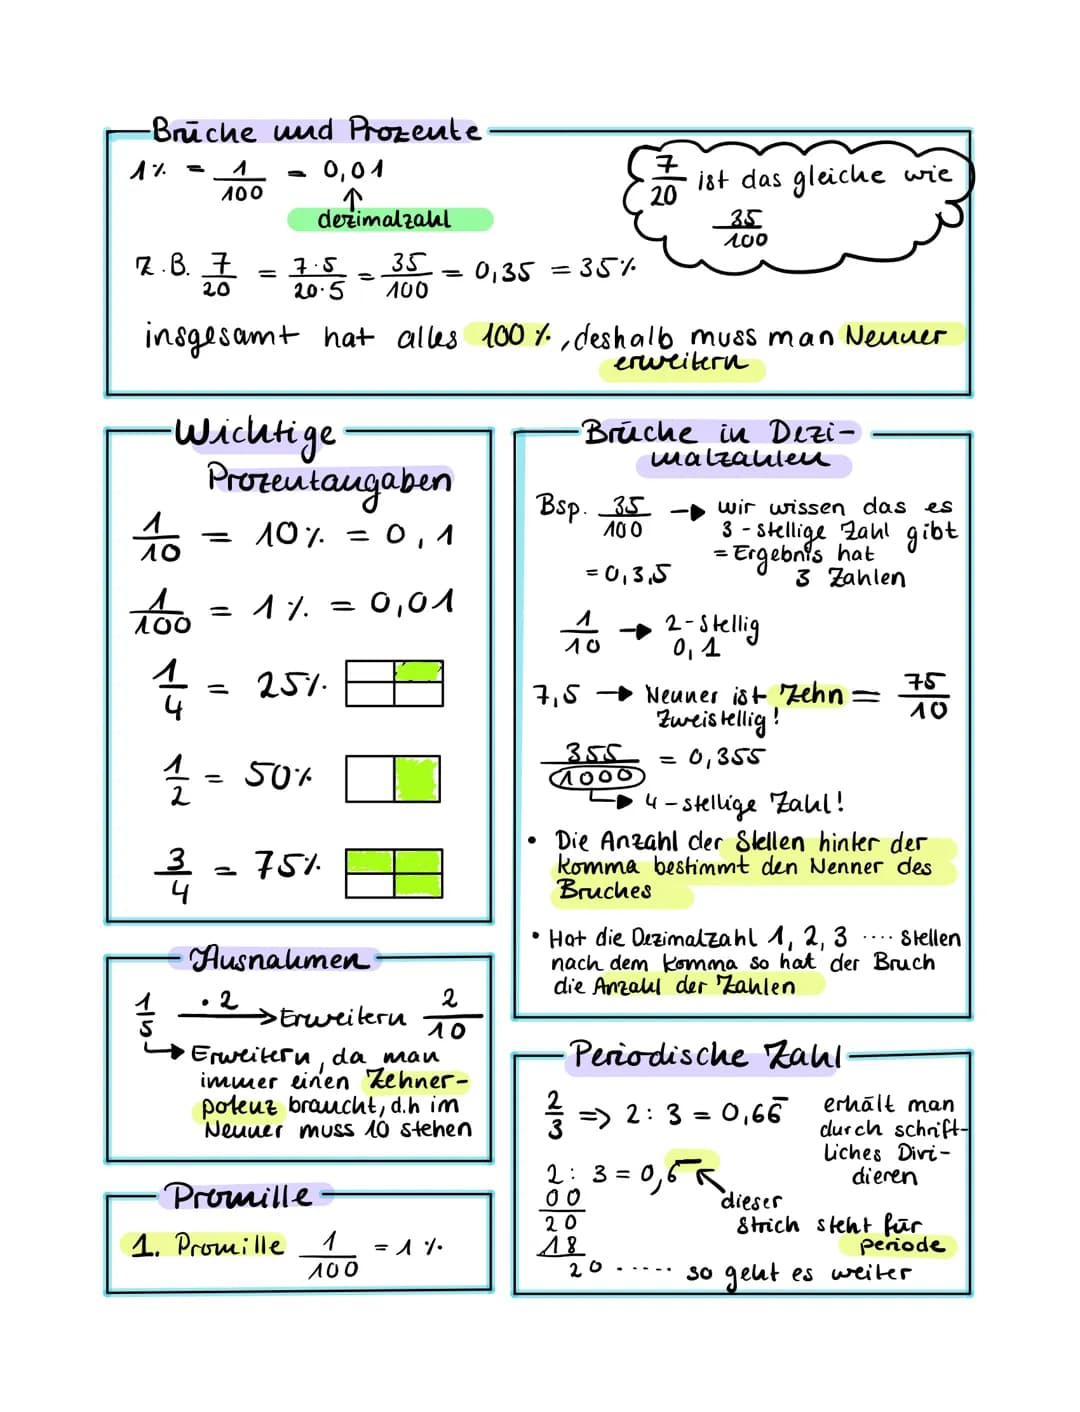 Brüche und Prozente
1% = 1/100 = 0,01
dezimalzahl
7/20 ist das gleiche wie
35/100
z.B. 7/20 = 7·5/20·5 = 35/100 = 0,35 = 35%
insgesamt hat alles 100%, deshalb muss man Nenner
erweitern
Wichtige
Prozentangaben
1/10 = 10% = 0,1
1/100 = 1% = 0,01
1/4 = 25%
1/2 = 50%
3/4 = 75%
Ausnahmen
1/5 ·2 → Erweitern 2/10
→ Erweitern, da man
immer einen Zehner-
potenz braucht, d.h im
Nenner muss 10 stehen
Promille
1. Promille 1/100 = 1%
Brüche in Dezi-
malzahlen
Bsp. 35/100 → wir wissen das es
3-stellige Zahl gibt
= Ergebnis hat
3 Zahlen
= 0,3,5
1/10 → 2-Stellig
0,1
7,5 → Nenner ist Zehn = 75/10
Zweistellig!
355/1000 = 0,355
→ 4-stellige Zahl!
• Die Anzahl der Stellen hinter der
Komma bestimmt den Nenner des
Bruches
• Hat die Dezimalzahl 1, 2, 3 .... Stellen
nach dem Komma so hat der Bruch
die Anzahl der Zahlen
Periodische Zahl
2/3 => 2 : 3 = 0,66̅
erhält man
durch schrift-
liches Divi-
dieren
2 : 3 = 0,6̅
00
20
18
20 ..... so geht es weiter
dieser
Strich steht für
periode